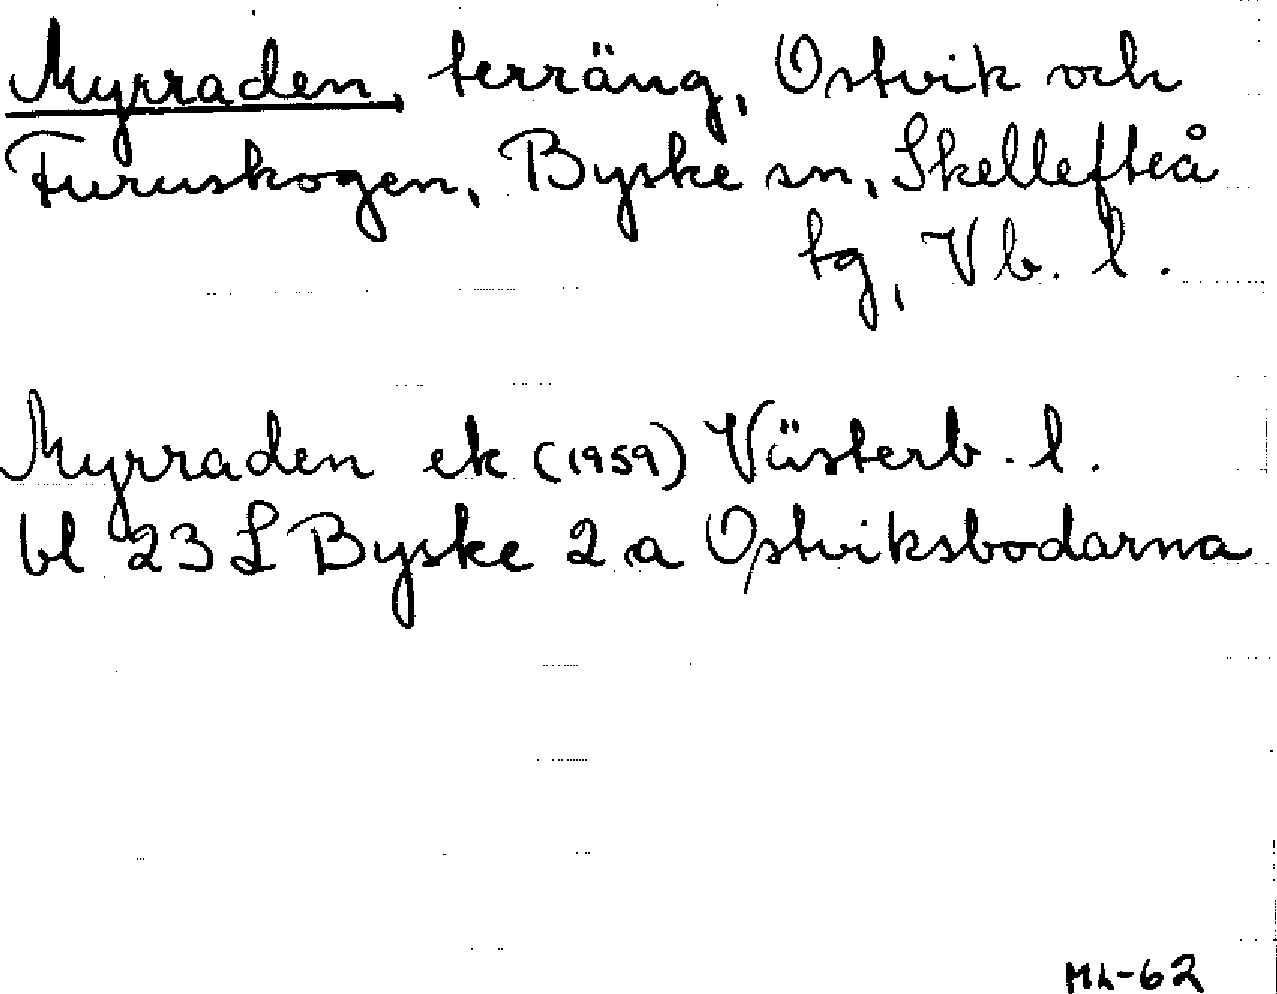 Myrraden, terräng, Ostvik och
Furuskogen, Byske sn, Skellefteå
tg, Vb. l.
Myrraden ek (1959) Västerb. l.
bl 23 L Byske 2 a Ostviksbodarna
Mh-62